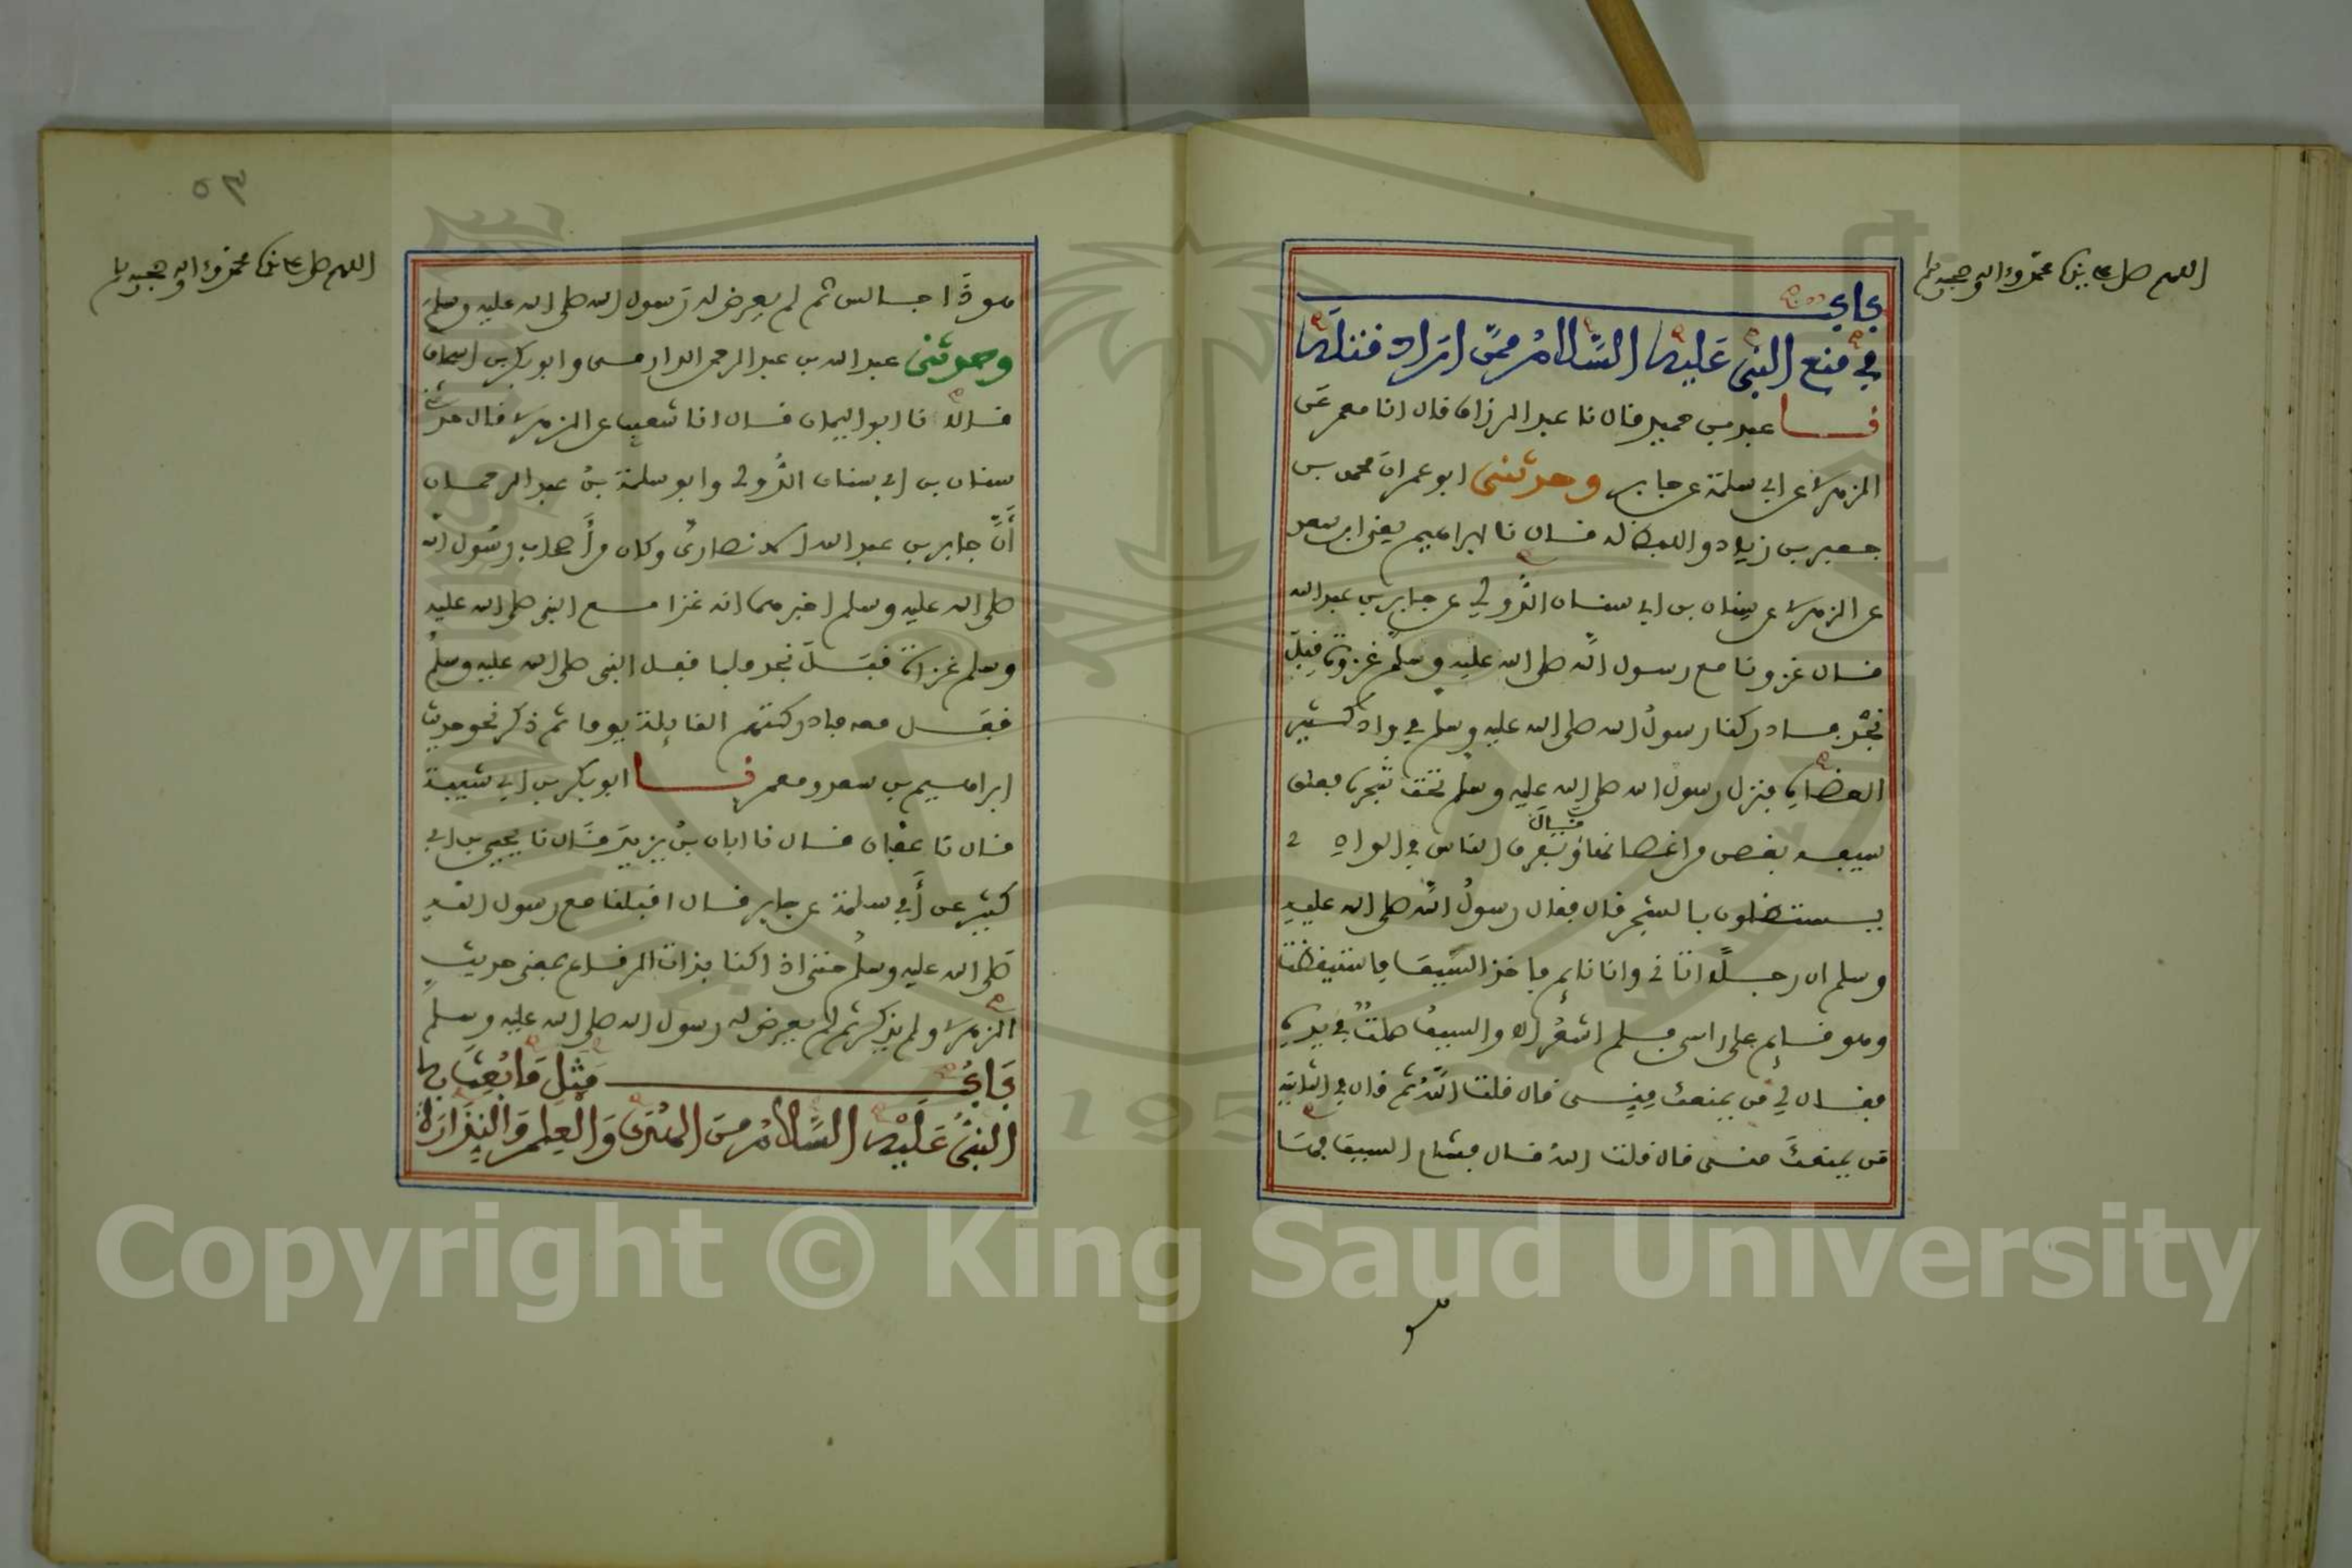 اللهم صل على نبينا محمد وءاله وصحبه وسلم
باب
في منع النبي عليه السلام ممن اراد قتله
نا عبد بن حميد قال نا عبد الرزاق قال انا معمر عن
الزهري عن ابي سلمة عن جابر وحدثني ابو عمران محمد بن
جعفر بن زياد واللفظ له قال نا ابراهيم يعني ابن سعد
عن الزهري عن سنان بن ابي سنان الدؤلي عن جابر بن عبد الله
قال غزونا مع رسول الله صلى الله عليه وسلم غزوة قبل
نجد فادركنا رسول الله صلى الله عليه وسلم في واد كثير
العضاه فنزل رسول الله صلى الله عليه وسلم تحت شجرة فعلق
سيفه بغصن من اغصانها قال وتفرق الناس في الوادي
يستظلون بالشجر قال فقال رسول الله صلى الله عليه
وسلم ان رجلا اتاني وانا نائم فاخذ السيف فاستيقظت
وهو قائم على راسي فلم اشعر الا والسيف صلتا في يده
فقال لي من يمنعك مني قال قلت الله ثم قال في الثانية
من يمنعك مني قال قلت الله قال فشام السيف فها
٥٣
اللهم صل على نبينا محمد وءاله وصحبه وسلم
هو ذا جالس ثم لم يعرض له رسول الله صلى الله عليه وسلم
وحدثني عبد الله بن عبد الرحمن الدارمي وابو بكر بن اسحاق
قالا نا ابو اليمان قال انا شعيب عن الزهري قال حدثني
سنان بن ابي سنان الدؤلي وابو سلمة بن عبد الرحمان
أن جابر بن عبد الله الانصاري وكان من أصحاب رسول الله
صلى الله عليه وسلم اخبرهما انه غزا مع النبي صلى الله عليه
وسلم غزاة قبل نجد فلما قفل النبي صلى الله عليه وسلم
قفل معه فادركتهم القائلة يوما ثم ذكر نحو حديث
ابراهيم بن سعد ومعمر نا ابو بكر بن ابي شيبة
قال نا عفان قال نا ابان بن يزيد قال نا يحيى بن ابي
كثير عن أبي سلمة عن جابر قال اقبلنا مع رسول الله
صلى الله عليه وسلم حتى اذا كنا بذات الرقاع بمعنى حديث
الزهري ولم يذكر ثم لم يعرض له رسول الله صلى الله عليه وسلم
باب مثل ما بعث به
النبي عليه السلام من الهدى والعلم والنذارة
Copyright © King Saud University
1957